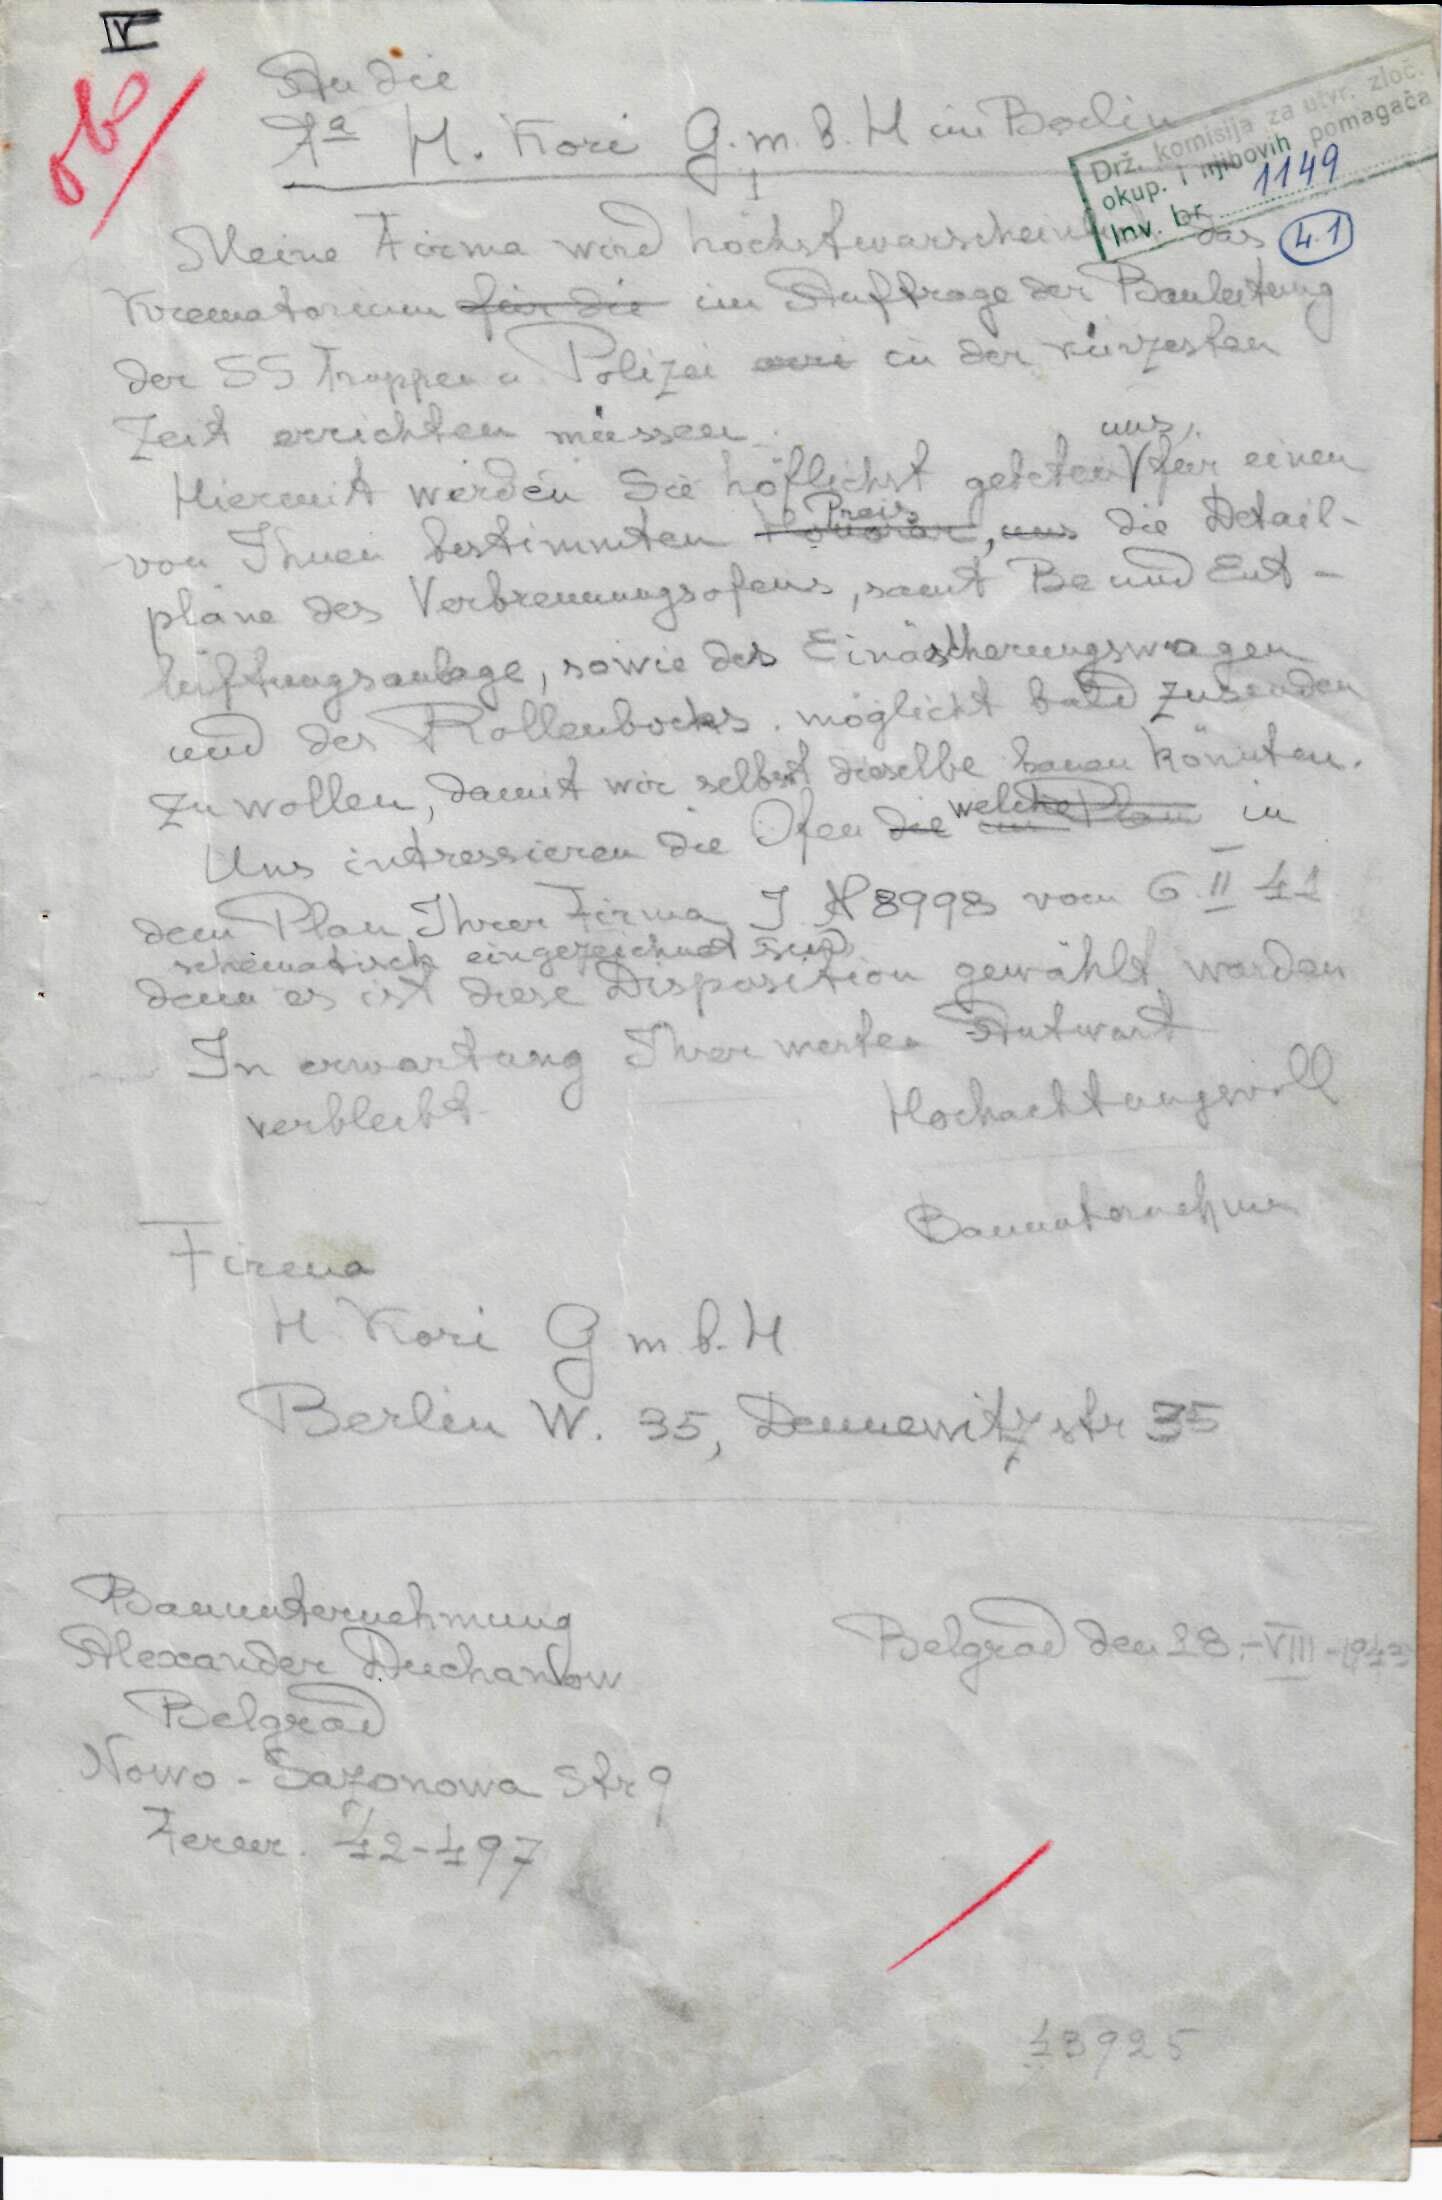 IV
An die
Fa H. Kori G.m.b.H in Berlin
Drž. komisija za utvr. zloč.
okup. i njihovih pomagača
Inv. br. 1149
4.1
Meine Firma wird höchstwarscheinlich das
Krematorium für die im Auftrage der Bauleitung
der SS Truppen u Polizei in der kürzesten
Zeit errichten müssen.
Hiermit werden Sie höflichst gebeten uns, für einen
von Ihnen bestimmten Honorar Preis, uns die Detail-
pläne des Verbrennungsofens, samt Be und Ent-
lüftungsanlage, sowie des Einäscherungswagen
und des Rollenbocks. möglicht bald zusenden
zu wollen, damit wir selbst dieselbe bauen könnten.
Uns intressieren die Öfen die welche im Plan in
dem Plan Ihrer Firma J. N 8998 vom 6.II 41
schematisch eingezeichnet sind
denn es ist diese Disposition gewählt worden
In erwartung Ihrer werten Antwort
verbleibt
Hochachtungsvoll
Bauunternehmer
Firma
H. Kori G m b. H
Berlin W. 35, Dennewitzstr 35
Bauunternehmung
Alexander Duchanow
Belgrad
Belgrad den 28.-VIII-1943
Nowo-Sazonowa Str 9
Fernr. 42-497
43925